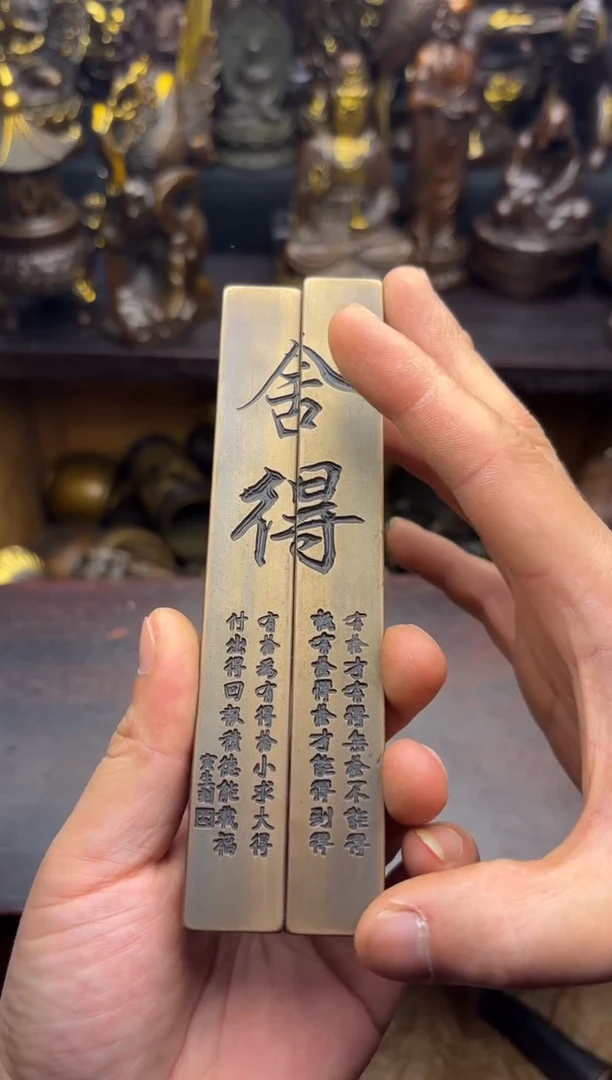 舍得
有舍才有得無舍不能得
有舍得舍才能得到得
有舍為有得舍小求大得
付出得回報積德能載福